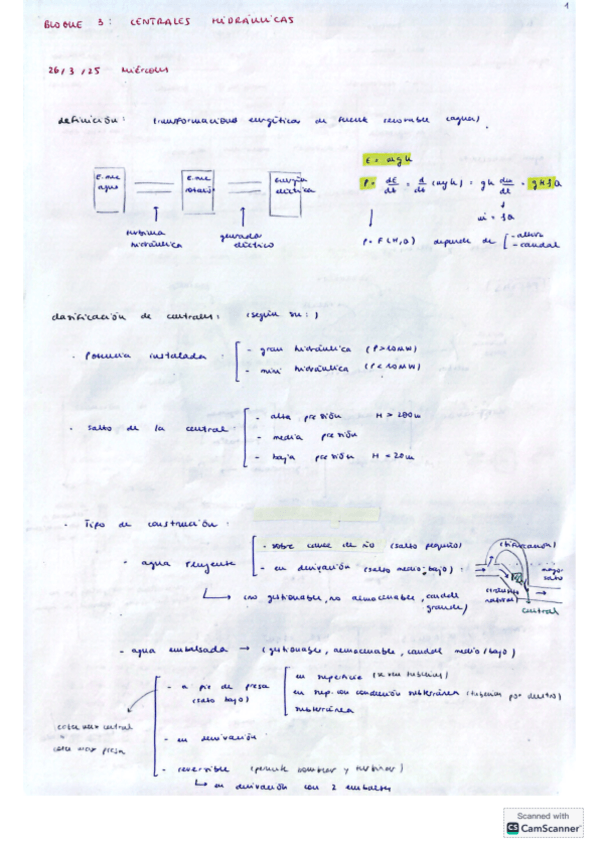 1
BLOQUE 3: CENTRALES HIDRÁULICAS
26/3/25 miércoles
definición: transformaciones energéticas de fuente renovable (agua).
e. mec agua
e. mec rotación
energía eléctrica
turbina hidráulica
generador eléctrico
E = mgh
P = dE/dt = d/dt (mgh) = gh dm/dt = gHρQ
ṁ = ρQ
P = F(H,Q) depende de [ - altura
- caudal
clasificación de centrales: (según su:)
· Potencia instalada
- gran hidráulica (P>10MW)
- mini hidráulica (P<10MW)
· salto de la central
- alta presión H > 200m
- media presión
- baja presión H = 20m
· Tipo de construcción:
- agua fluyente
- sobre cauce de río (salto pequeño)
- en derivación (salto medio, bajo):
(no gestionable, no almacenable, caudal grande)
(derivación)
mayor salto
natural)
central
- agua embalsada → (gestionable, almacenable, caudal medio/bajo)
- a pie de presa (salto bajo)
en superficie
en sup. con conducción subterránea (tuberías por dentro)
subterránea
central
presa
- en derivación
- reversible (permite bombear y turbinar)
↳ en derivación con 2 embalses
Scanned with
CS CamScanner